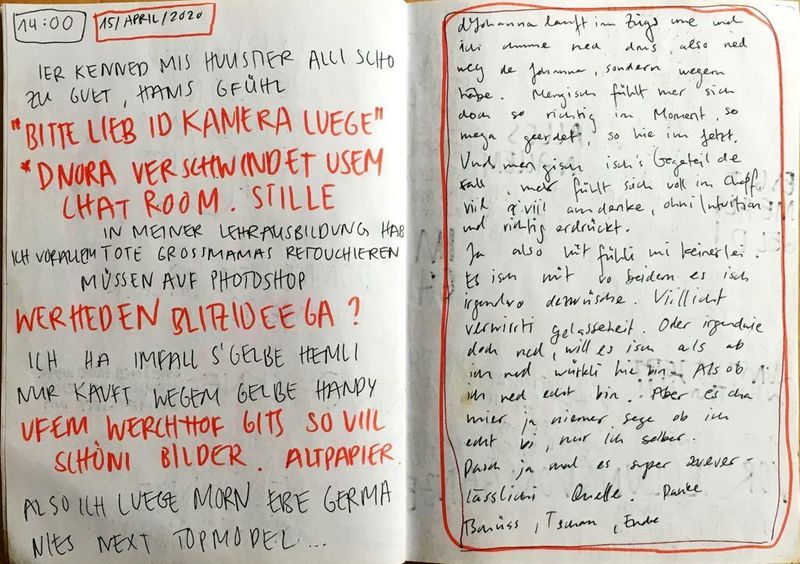 14:00
15/APRIL/2020
IER KENNED MIS HUUSTIER ALLI SCHO
ZU GUET, HANS GFÜHL
"BITTE LIEB ID KAMERA LUEGE"
*DNORA VERSCHWINDET USEM
CHAT ROOM. STILLE
IN MEINER LEHRAUSBILDUNG HAB
ICH VORALLEM TOTE GROSSMAMAS RETOUCHIEREN
MÜSSEN AUF PHOTSHOP
WER HED EN BLITZIDEE GA?
ICH HA IMFALL S'GELBE HEMLI
NUR KAUFT WEGEM GELBE HANDY
UFEM WERCHHOF GITS SO VIIL
SCHÖNI BILDER. ALTPAPIER.
ALSO ICH LUEGE MORN EBE GERMA
NIES NEXT TOPMODEL...
dJohanna lauft im Zügs ume und
ich chume ned drus, also ned
weg de Johanna, sondern wegem
häbe. Mengisch fühlt mer sich
doch so richtig im Moment, so
mega geerdet, so hie im Jetzt.
Und mengisch isch's Gegeteil de
Fall, mer fühlt sich voll im Chopf,
viil z'viil am denke, ohni Intuition
und richtig erdrückt.
Ja also hüt fühli mi keinerlei.
Es isch nüt vo beidem es isch
irgendwo dezwüsche. Viellicht
verwirrti gelasseheit. Oder irgendwie
doch ned, will es isch als ob
ich ned würkli hie bin. Als ob
ich ned echt bin. Aber es cha
mier ja niemer sege ob ich
echt bi, nur ich selber.
Dasch ja mal es super zuever-
lässlichi Quelle. Danke
Tschüss, Tschau, Ende